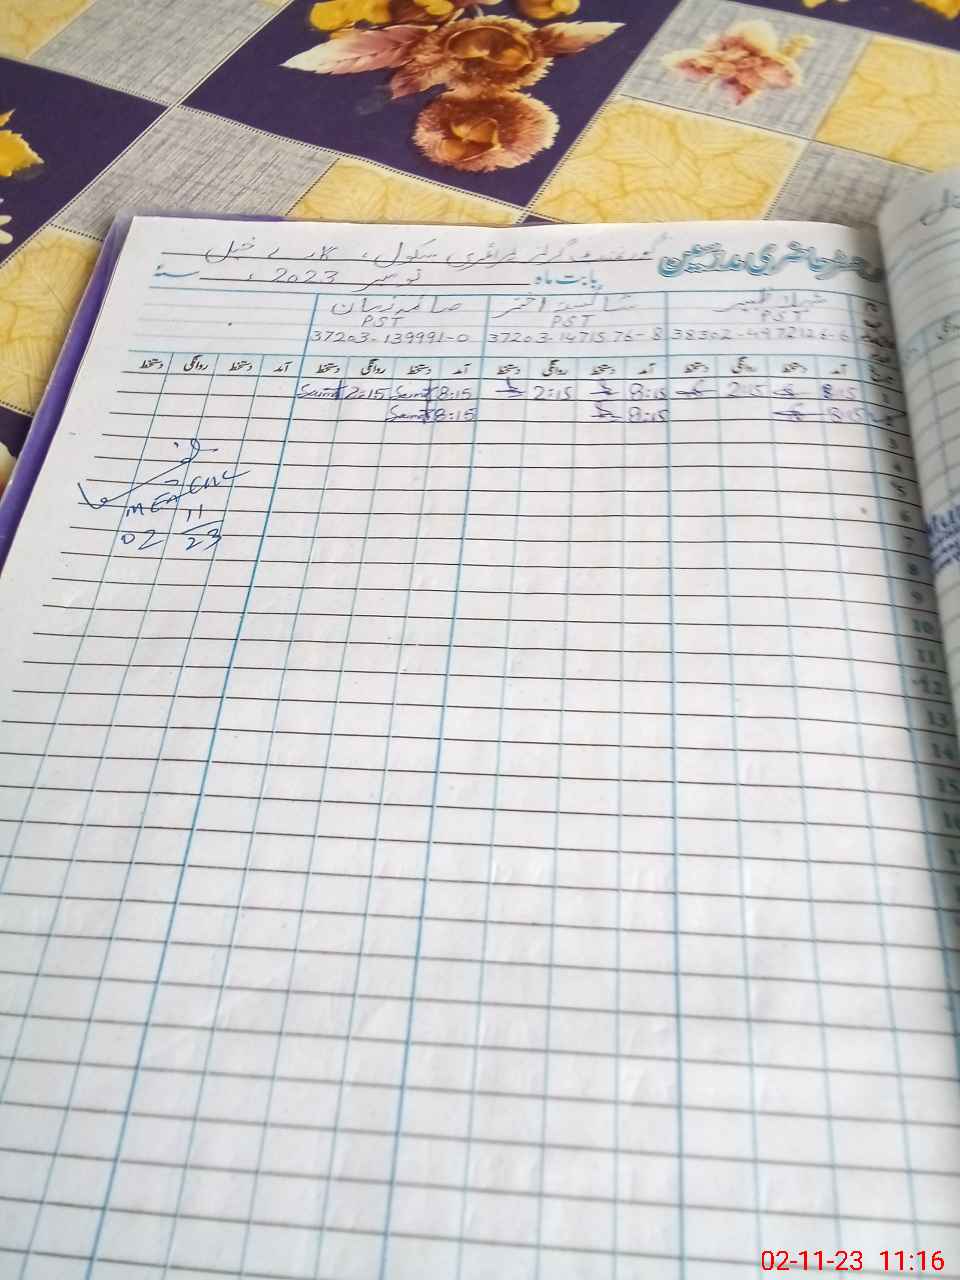 گورنمنٹ گرلز پرائمری سکول، خیل
حاضری مدرسین
بابت ماہ نومبر 2023ء سنہ
شہلا ظہیر شائستہ اختر صائمہ زمان
PST PST PST
38302-4972126-6 37203-1471576-8 37203-139991-0
آمد دستخط روانگی دستخط آمد دستخط روانگی دستخط آمد دستخط روانگی دستخط آمد دستخط روانگی دستخط
1 8:15 2:15 8:15 2:15 8:15 2:15
2 8:15 8:15 8:15
3
4
5
6
7
8
9
10
11
12
13
14
15
MEA
02
11
23
02-11-23 11:16